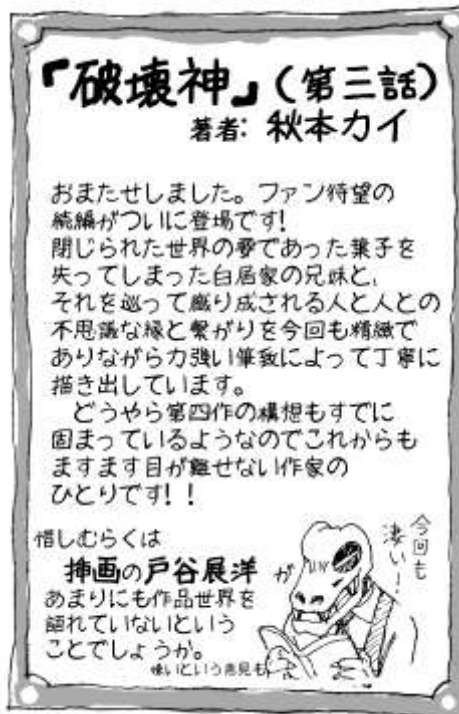 『破壊神』（第三話）
著者: 秋本カイ
おまたせしました。ファン待望の
続編がついに登場です!
閉じられた世界の夢であった葉子を
失ってしまった白居家の兄妹と、
それを巡って織り成される人と人との
不思議な縁と繋がりを今回も精緻で
ありながら力強い筆致によって丁寧に
描き出しています。
どうやら第四作の構想もすでに
固まっているようなのでこれからも
ますます目が離せない作家の
ひとりです!!
惜しむらくは
挿画の戸谷展洋が
あまりにも作品世界を
語れていないという
ことでしょうか。
という意見も
今回も
凄い!